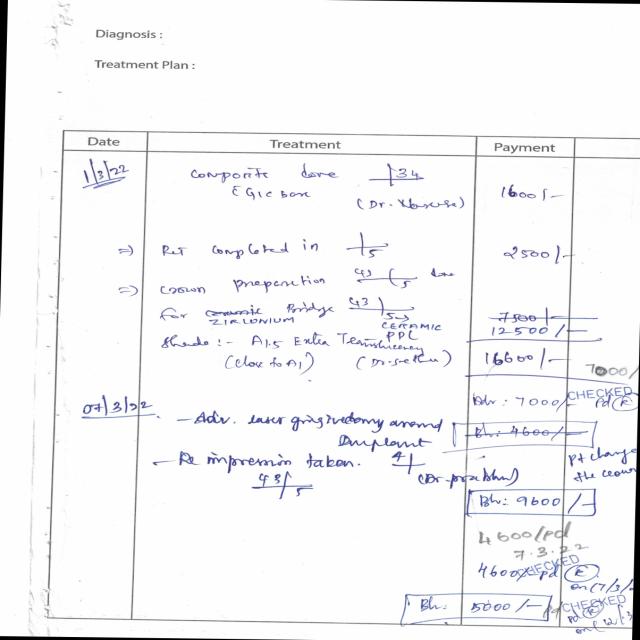 Diagnosis :
Treatment Plan :
Date Treatment Payment
1/3/22 Composite done 34 1600/-
GIC base
(Dr.
=> RCT completed in 5 2500/-
=> Crown preparation 43 5 done
For ceramic Bridge 43 5 7500/-
ZIRCONIUM CERAMIC 12500/-
Shade :- A1.5 Extra Translucency PPL
(Close to A1) (Dr. 16600/-
7000/
07/3/22 Bln: 7000/- CHECKED
pd
- Adv. laser gingivectomy around
Implant Bln: 4600/-
- Re impression taken. 4 (Dr. prabhu) Pt change
43 5 the crown
Bln: 9600/-
4600/pd
7.3.22
4600/- pd CHECKED
on (7/3/
Bln: 5000/- pd CHECKED
pd
on (12/3